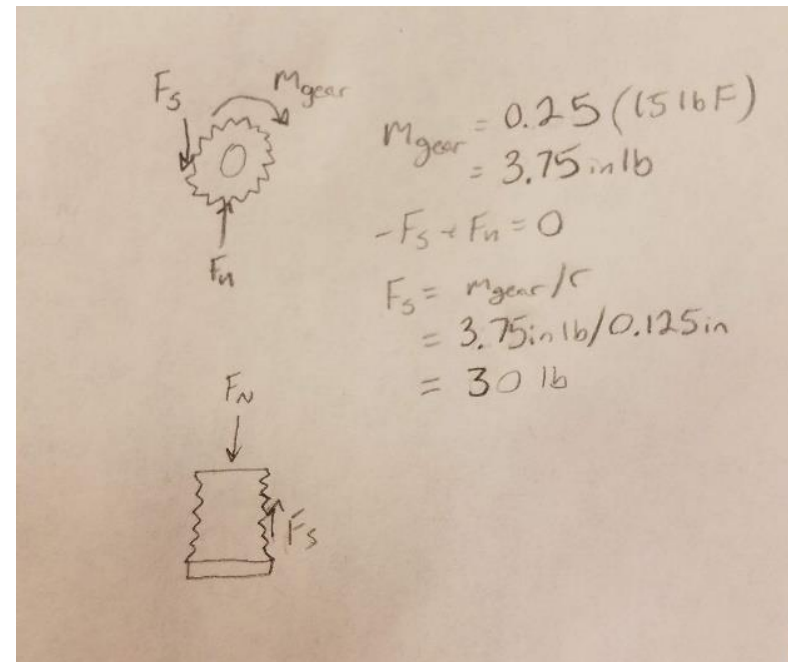 Fs
Mgear
Mgear = 0.25 (15 lbF)
= 3.75 in lb
-Fs + Fn = 0
Fn
Fs = Mgear/r
= 3.75 in lb/0.125in
= 30 lb
FN
Fs